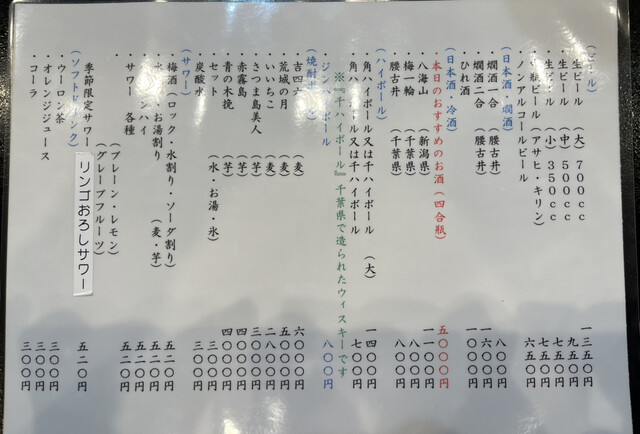 生ビール （大） 700cc 一三五〇円
生ビール （中） 500cc 九五〇円
生ビール （小） 350cc 七五〇円
（アサヒ・キリン） 七五〇円
ノンアルコールビール 六五〇円
（日本酒・燗酒）
燗酒一合 （腰古井） 八〇〇円
燗酒二合 （腰古井） 一六〇〇円
ひれ酒 一〇〇〇円
（日本酒・冷酒）
本日のおすすめのお酒（四合瓶） 五〇〇〇円
八海山 （新潟県） 一一〇〇円
梅一輪 （千葉県） 八〇〇円
腰古井 （千葉県） 八〇〇円
（ハイボール）
角ハイボール又は千ハイボール （大） 一四〇〇円
角ハイボール又は千ハイボール 七〇〇円
※『千ハイボール』千葉県で造られたウィスキーです
ジンハイボール 八〇〇円
（焼酎
吉四六 （麦） 六〇〇〇円
荒城の月 （麦） 五〇〇〇円
いいちこ （麦） 二八〇〇円
さつま島美人 （芋） 三〇〇〇円
赤霧島 （芋） 四〇〇〇円
青の木挽 （芋） 四〇〇〇円
セット （水・お湯・氷） 三〇〇円
炭酸水 三〇〇円
（サワー）
梅酒（ロック・水割り・ソーダ割り） 五二〇円
水 ・お湯割り （麦・芋） 五二〇円
ハイ 五二〇円
サワー 各種 五二〇円
（プレーン・レモン）
（グレープフルーツ）
季節限定サワー リンゴおろしサワー 五二〇円
（ソフトドリンク）
ウーロン茶 三〇〇円
オレンジジュース 三〇〇円
コーラ 三〇〇円